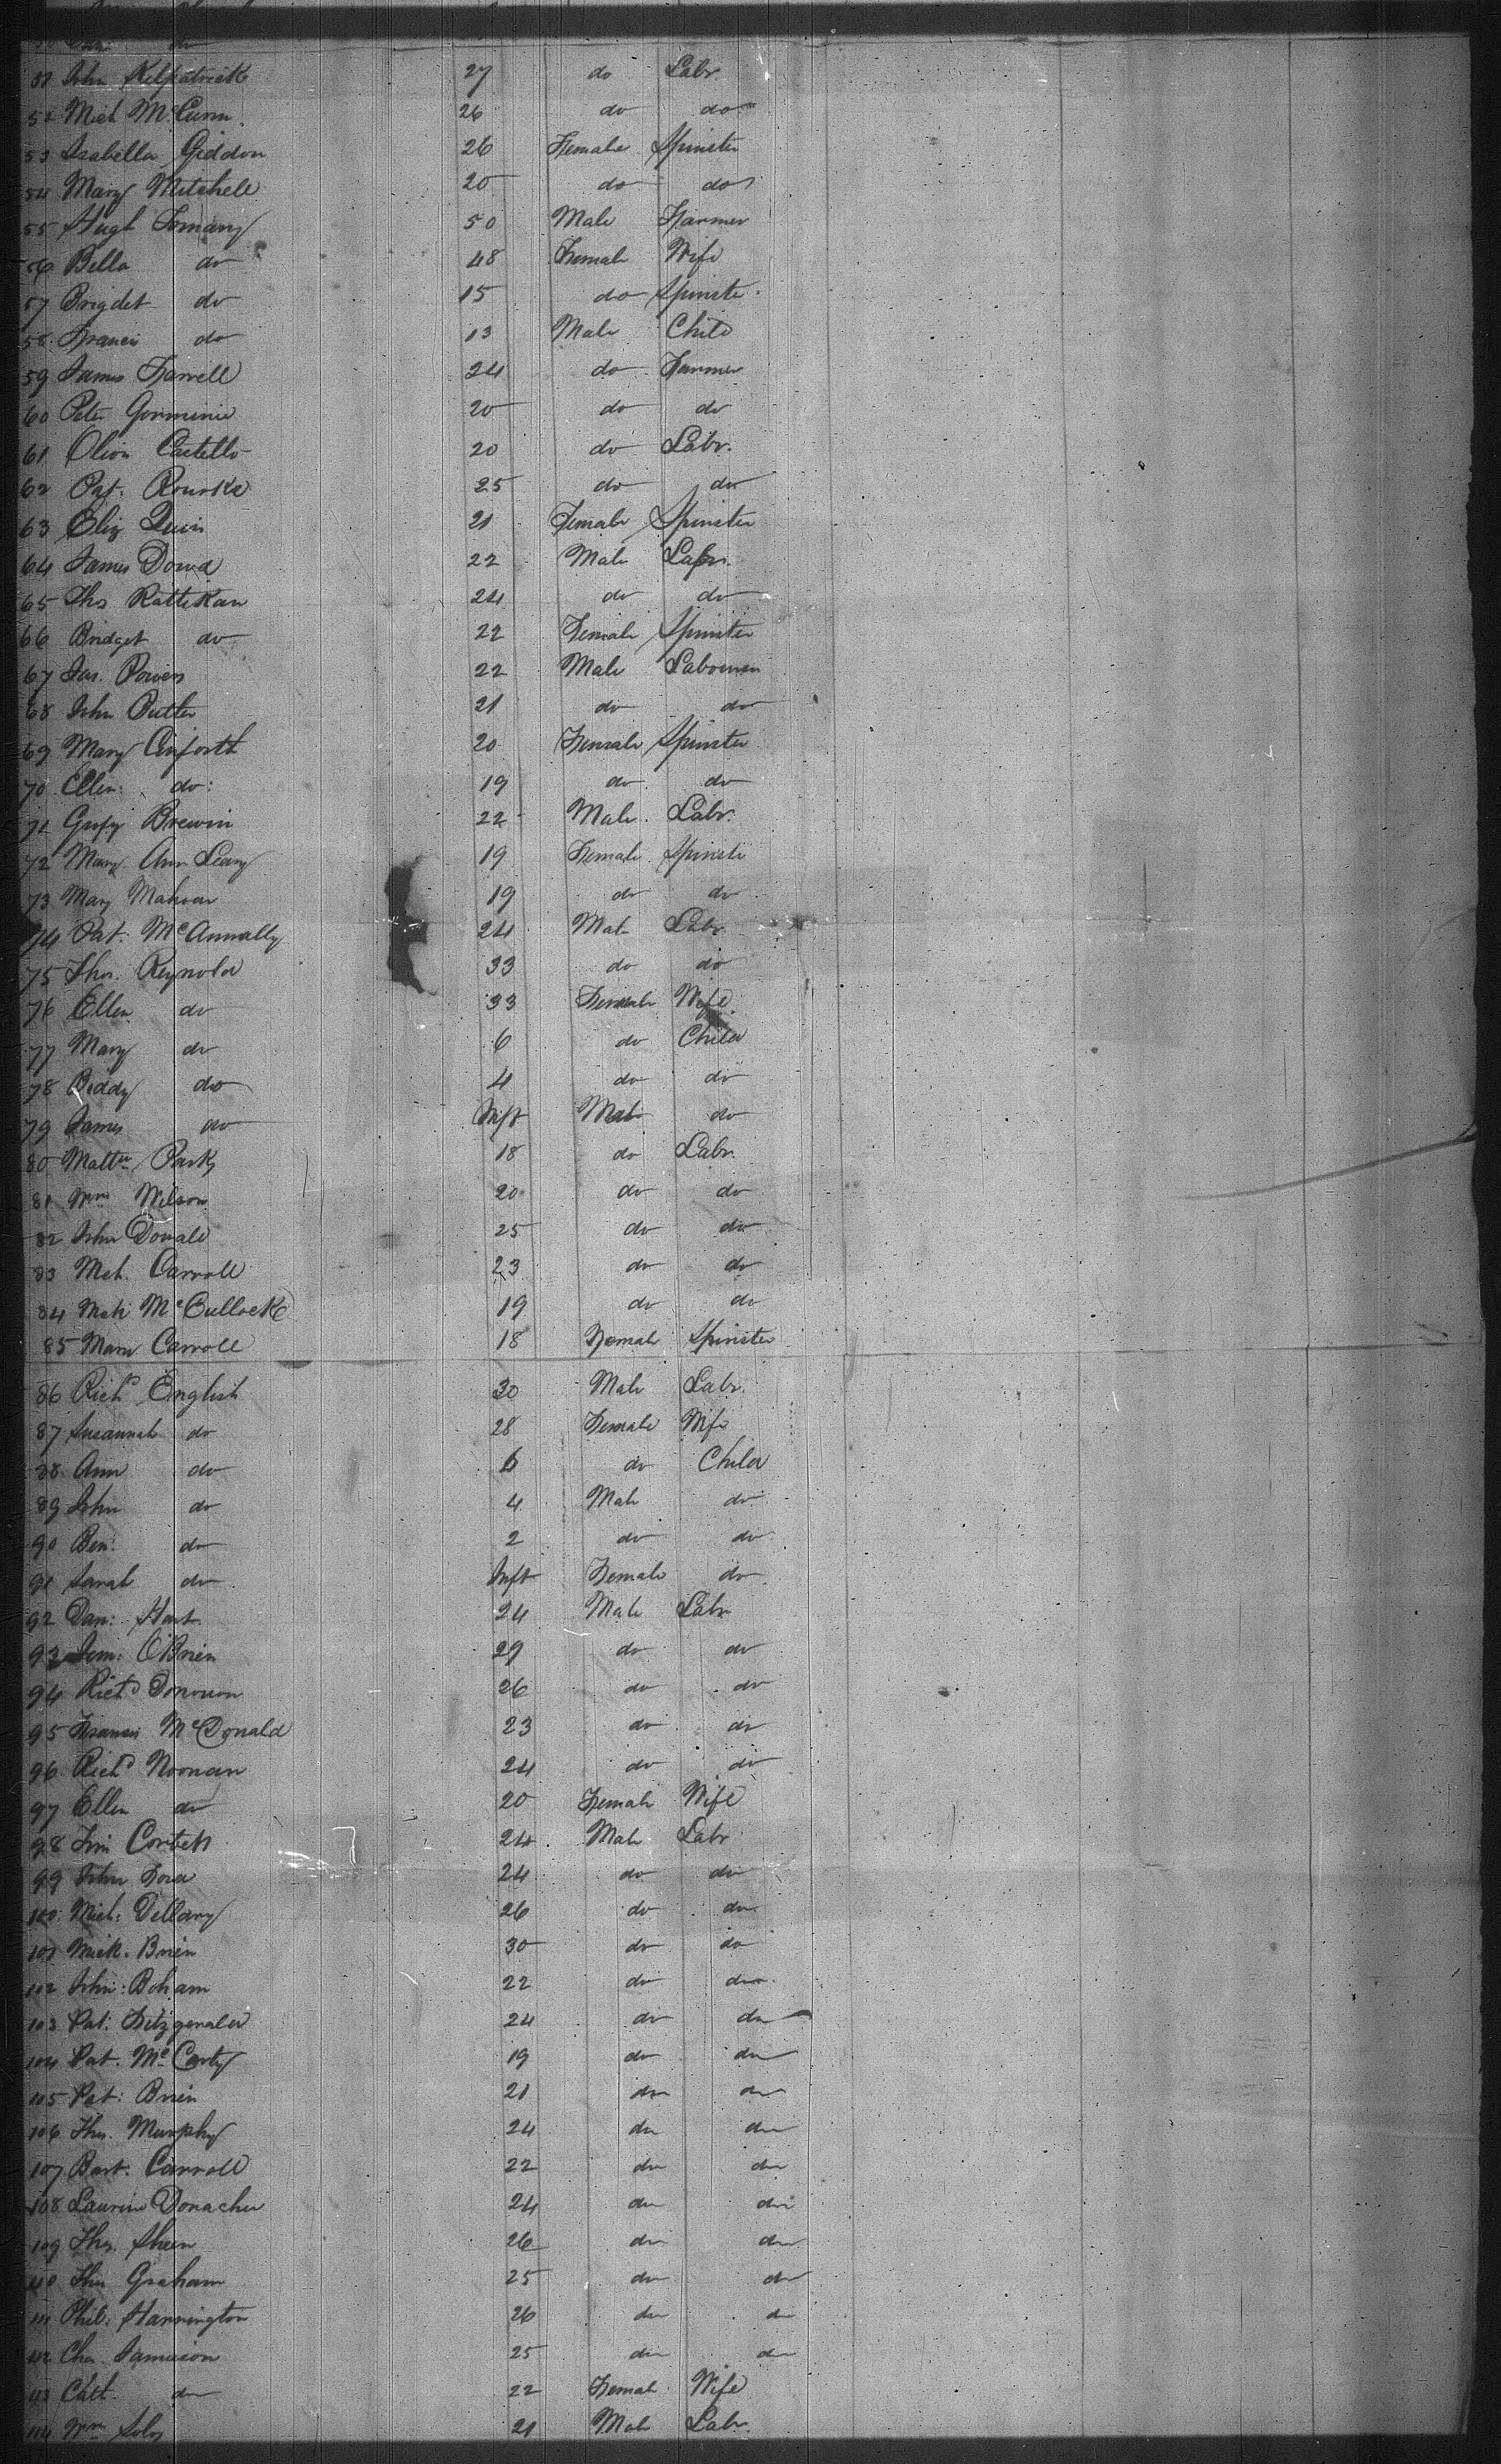 do
51 John Kilpatrick 27 do Labr.
52 Mich McCunn. 26 do do
53 Isabella Giddon 26 Female Spinster
54 Mary Mitchell 20 do do
55 Hugh 50 Male Farmer
56 Bella do 48 Female Wife
57 Brigdet do 15 do Spinster
58 Francis do 13 Male Child
59 James Farrell 24 do Farmer
60 Peter Gorminie 20 do do
61 Oliver Castello 20 do Labr.
62 Pat. Rourke 25 do do
63 Eliz Quin 21 Female Spinster
64 James Dowd 22 Male Labr.
65 Ths Rattikan 24 do do
66 Bridget do 22 Female Spinster
67 Jas. Powers 22 Male Labourer
68 John Butler 21 do do
69 Mary 20 Female Spinster
70 Ellen do: 19 do do
71 Brewin 22 Male Labr.
72 Mary Ann Leary 19 Female Spinster
73 Mary Mahon 19 do do
74 Pat. McAnnally 24 Male Labr
75 Thos. Reynold 33 do do
76 Ellen do 33 Female Wife
77 Mary do 6 do Child
78 Biddy do 4 do do
79 James do Inft Male do
80 Mattw Park 18 do Labr.
81 Wm Wilson 20 do do
82 John Donald 25 do do
83 Mch. Carroll 23 do do
84 Mch McCullock 19 do do
85 Mary Carroll 18 Female Spinster
86 Richd English 30 Male Labr.
87 Susannah do 28 Female Wife
88 Ann do 6 do Child
89 John do 4 Male do
90 Ben: do 2 do do
91 Sarah do Inft Female do
92 Dan: Hart 24 Male Labr
93 Jem: O'Brien 29 do do
94 Richd Donovan 26 do do
95 Francis McDonald 23 do do
96 Richd Noonan 24 do do
97 Ellen do 20 Female Wife
98 Tim Corbett 24 Male Labr
99 John 24 do do
100 Mich: Dellany 26 do do
101 Mick. Brien 30 do do
102 John: Boham 22 do do
103 Pat: Fitzgerald 24 do do
104 Pat. McCarty 19 do do
105 Pat: Brien 21 do do
106 Thos. Murphy 24 do do
107 Bart: Carroll 22 do do
108 Laurence Donacher 24 do do
109 Thos. Sheen 26 do do
110 Thos Graham 25 do do
111 Phil: Harrington 26 do do
112 Chas. Jamieson 25 do do
113 Cath. do 22 Female Wife
114 Wm 21 Male Labr.